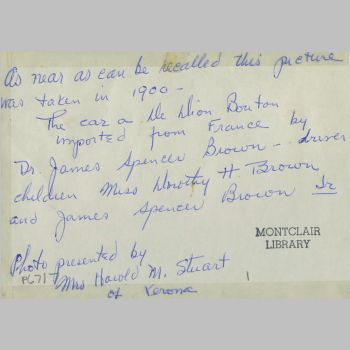 As near as can be recalled this picture
was taken in 1900-
The car a De Dion Bouton
imported from France by
Dr. James Spencer Brown - driver
children Miss Dorothy H Brown
and James Spencer Brown Jr
MONTCLAIR
LIBRARY
Photo presented by
Mrs Harold M. Stuart
of Verona
P671
1